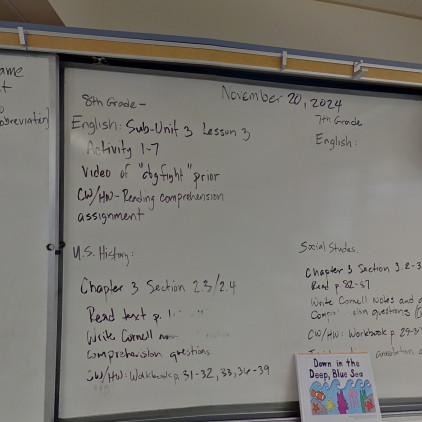 ame
November 20, 2024
8th Grade -
English: Sub-Unit 3 Lesson 3
Activity 1-7
video of "dogfight" prior
CW/HW-Reading comprehension
assignment
U.S. History:
Chapter 3 Section 2.3/2.4
Read text p.
Write Cornell
comprehension questions
CW/HW: Workbook p. 31-32, 33, 36-39
7th Grade
English:
Social Studies:
Chapter 3 Section 3.2-3.
Read p 82-87
Write Cornell Notes and
questions
CW/HW: Workbook p 29-3
Down in the
Deep, Blue Sea